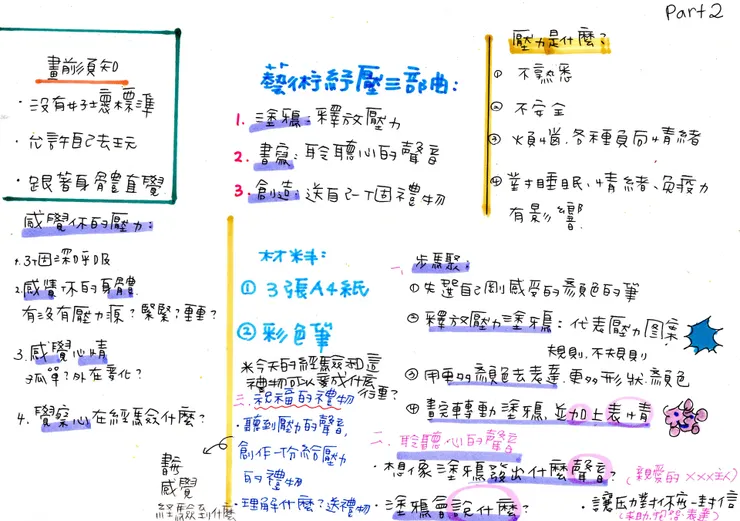 Part 2
畫前須知
・沒有好壞標準
・允許自己去玩
・跟著身體直覺
藝術紓壓三部曲:
1. 塗鴉: 釋放壓力
2. 書寫: 聆聽心的聲音
3. 創造: 送自己一個禮物
壓力是什麼?
① 不熟悉
② 不安全
③ 煩惱、各種負向情緒
④ 對睡眠、情緒、免疫力
有影響
感覺你的壓力:
1. 3個深呼吸
2. 感覺你的身體
有沒有壓力源? 緊緊? 重重?
3. 感覺心情
孤單? 外在變化?
4. 覺察心在經驗什麼?
畫
感覺
經驗到什麼
材料:
① 3張A4紙
② 彩色筆
※今天的經驗和這
禮物可以變成什麼
三、祝福的禮物
・聽到壓力的聲音,
創作一份給壓力
的禮物
・理解什麼? 送禮物
一、步驟:
① 先選自己剛感受的顏色的筆
② 釋放壓力塗鴉: 代表壓力圖案
規則、不規則
③ 用更多顏色去表達、更多形狀、顏色
④ 畫完轉動塗鴉, 並加上表情
二、聆聽心的聲音
・想像塗鴉發出什麼聲音?
・塗鴉會說什麼?
(親愛的XXX主人)
・讓压力對你寫一封信